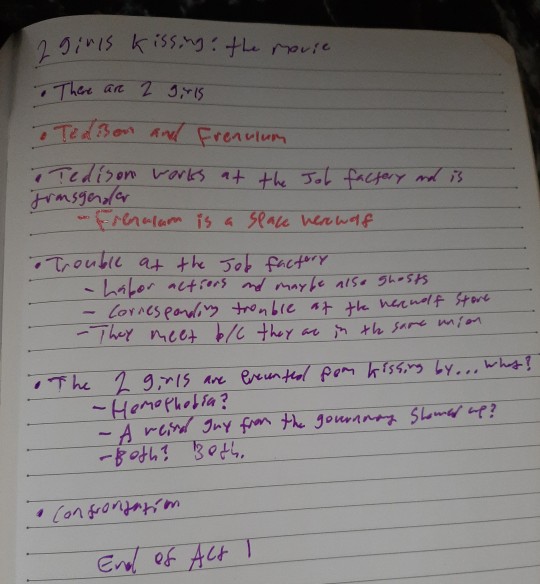 2 girls kissing: the movie
• There are 2 girls
• Tedison and Frenulum
• Tedison works at the Job factory and is
transgender
- Frenulum is a space werewolf
• Trouble at the Job factory
- Labor actions and maybe also ghosts
- Corresponding trouble at the werewolf store
- They meet b/c they are in the same union
• The 2 girls are prevented from kissing by... what?
- Homophobia?
- A weird guy from the government showed up?
- Both? Both.
• Confrontation
End of Act 1